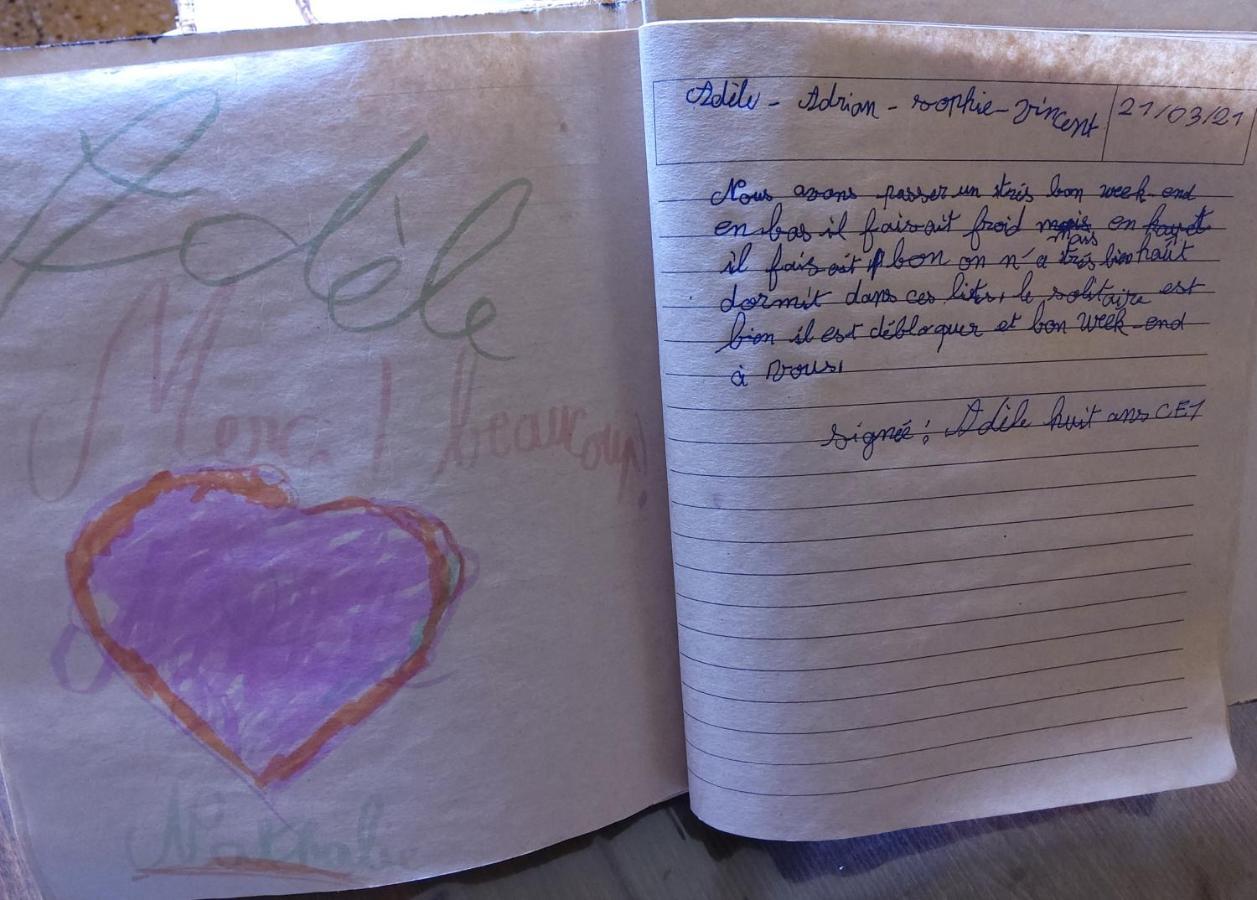 Adèle
Merci beaucoup!
Nathalie
Adèle - Adrian - Sophie - Vincent
21/03/21
Nous avons passer un très bon week-end
en bas il faisait froid mais en
il faisait bon on n'a très bien haut
dormit dans ces lits, le solitaire est
bien il est débloquer et bon week-end
à vous,
signée : Adèle huit ans CE1